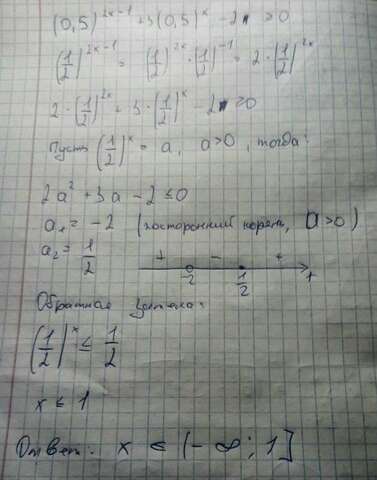 (0,5)^{2x-1} + 3(0,5)^x - 2 ≥ 0
(1/2)^{2x-1} = (1/2)^{2x} · (1/2)^{-1} = 2 · (1/2)^{2x}
2 · (1/2)^{2x} + 3 · (1/2)^x - 2 ≥ 0
Пусть (1/2)^x = a, a > 0, тогда:
2a² + 3a - 2 ≤ 0
a₁ = -2 (посторонний корень, a > 0)
a₂ = 1/2
+ - +
-2 1/2
Обратная замена:
(1/2)^x ≤ 1/2
x ≤ 1
Ответ: x ∈ (-∞; 1]